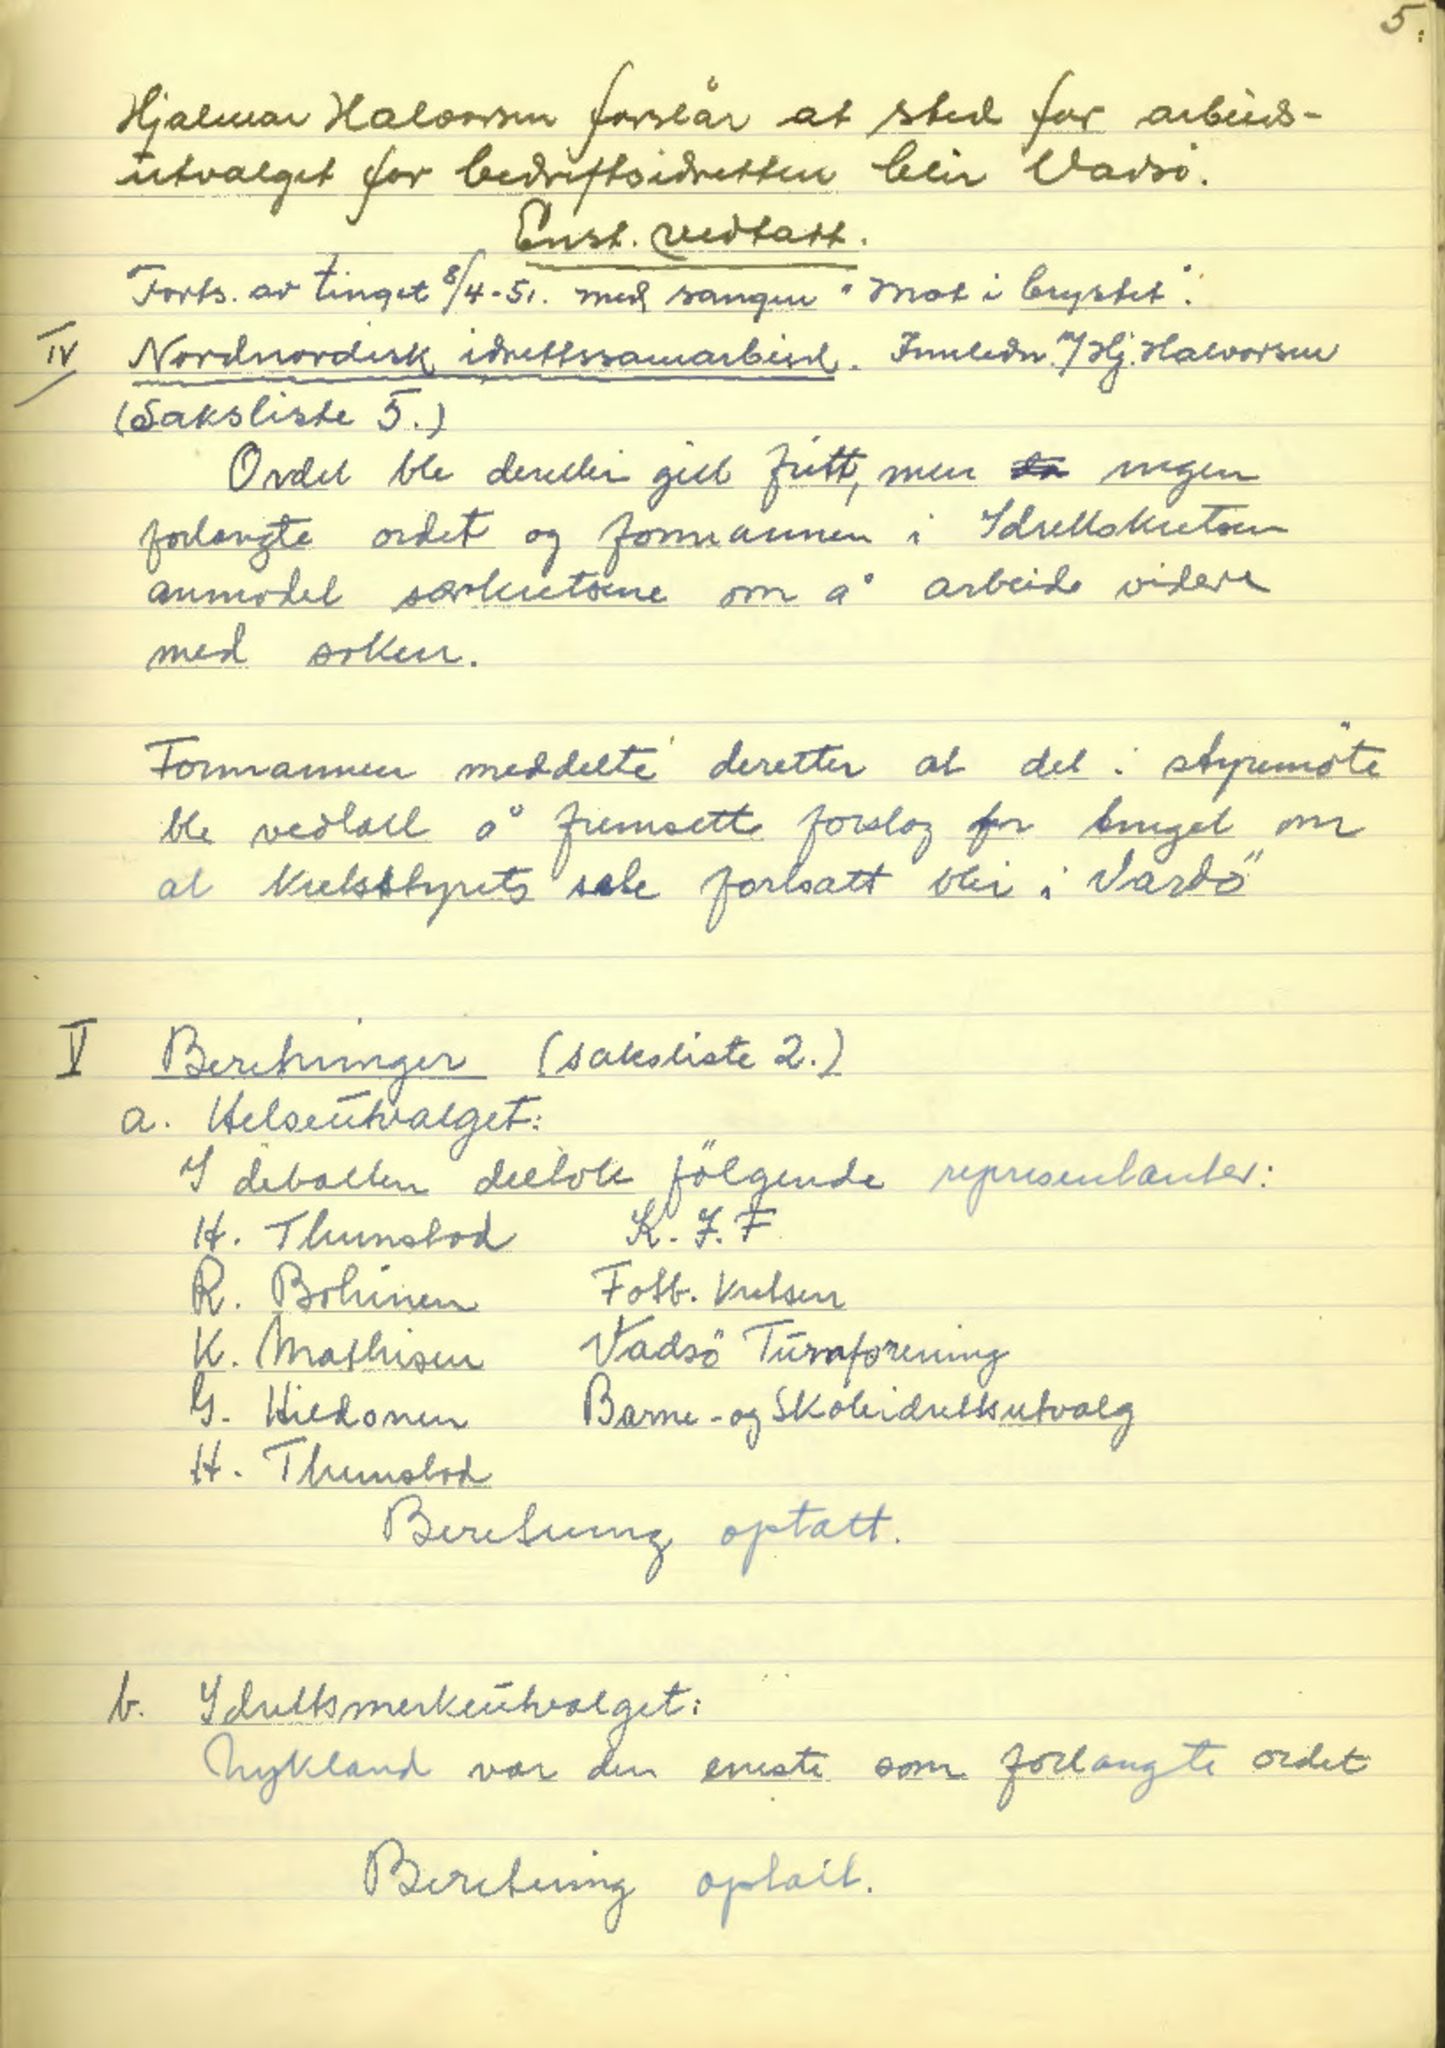 5.
Hjalmar Halvorsen forslår at sted for arbeids-
utvalget for bedriftsidretten blir Vadsö.
Enst. vedtatt.
Forts. av tinget 8/4-51. med sangen "Mot i brystet".
IV Nordnordisk idrettssamarbeid. Innledn. v/Hj. Halvorsen
(Saksliste 5.)
Ordet ble deretter gitt fritt, men ingen
forlangte ordet og formannen i Idrettskretsen
anmodet særkretsene om å arbeide videre
med saken.
Formannen meddelte deretter at det i styremöte
ble vedtatt å fremsette forslag for tinget om
at kretsstyrets sete fortsatt blir i Vardö
V Beretninger (saksliste 2.)
a. Helseutvalget:
I debatten deltok fölgende representanter:
H. Thumstad K.I.F
R. Bohinen Fotb. kretsen
K. Mathisen Vadsö Turnforening
G. Hildonen Barne- og Skoleidrettsutvalg
H. Thumstad
Beretning optatt.
b. Idrettsmerkeutvalget:
Nykland var den eneste som forlangte ordet
Beretning optatt.